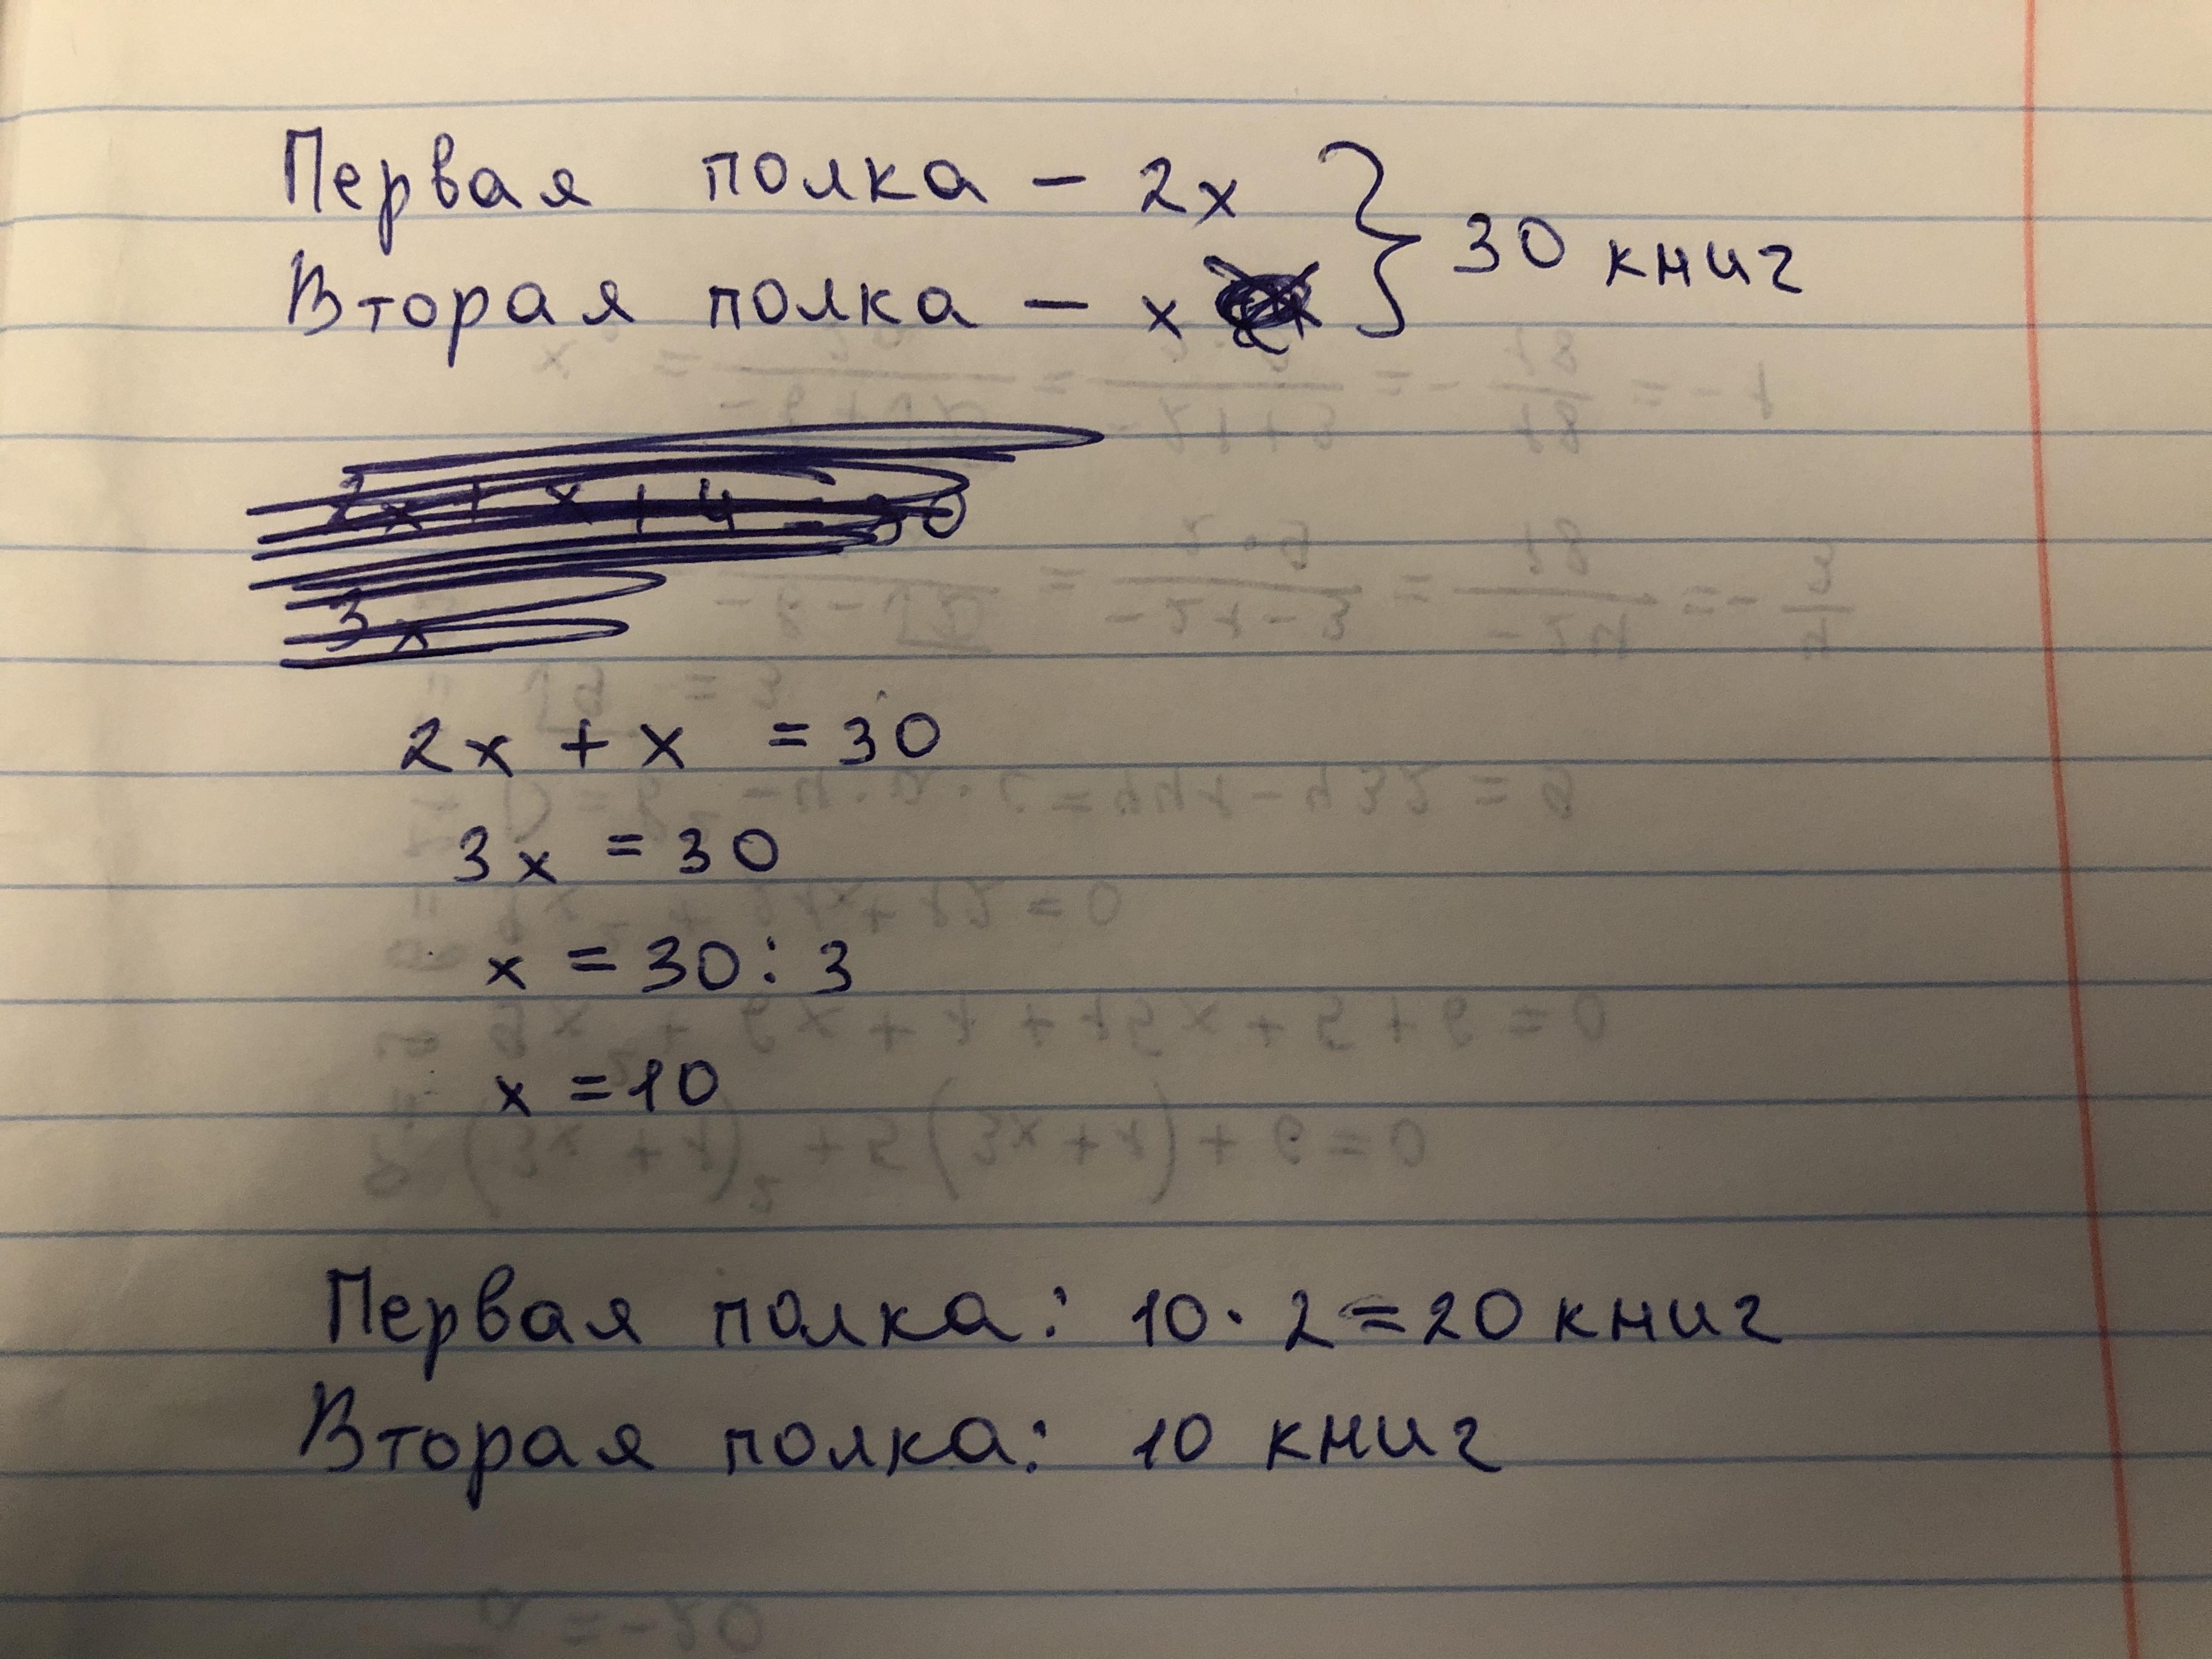 Первая полка – 2x } 30 книг
Вторая полка – x
2x + x + 4 = 30
3x
2x + x = 30
3x = 30
x = 30 : 3
x = 10
Первая полка: 10 · 2 = 20 книг
Вторая полка: 10 книг